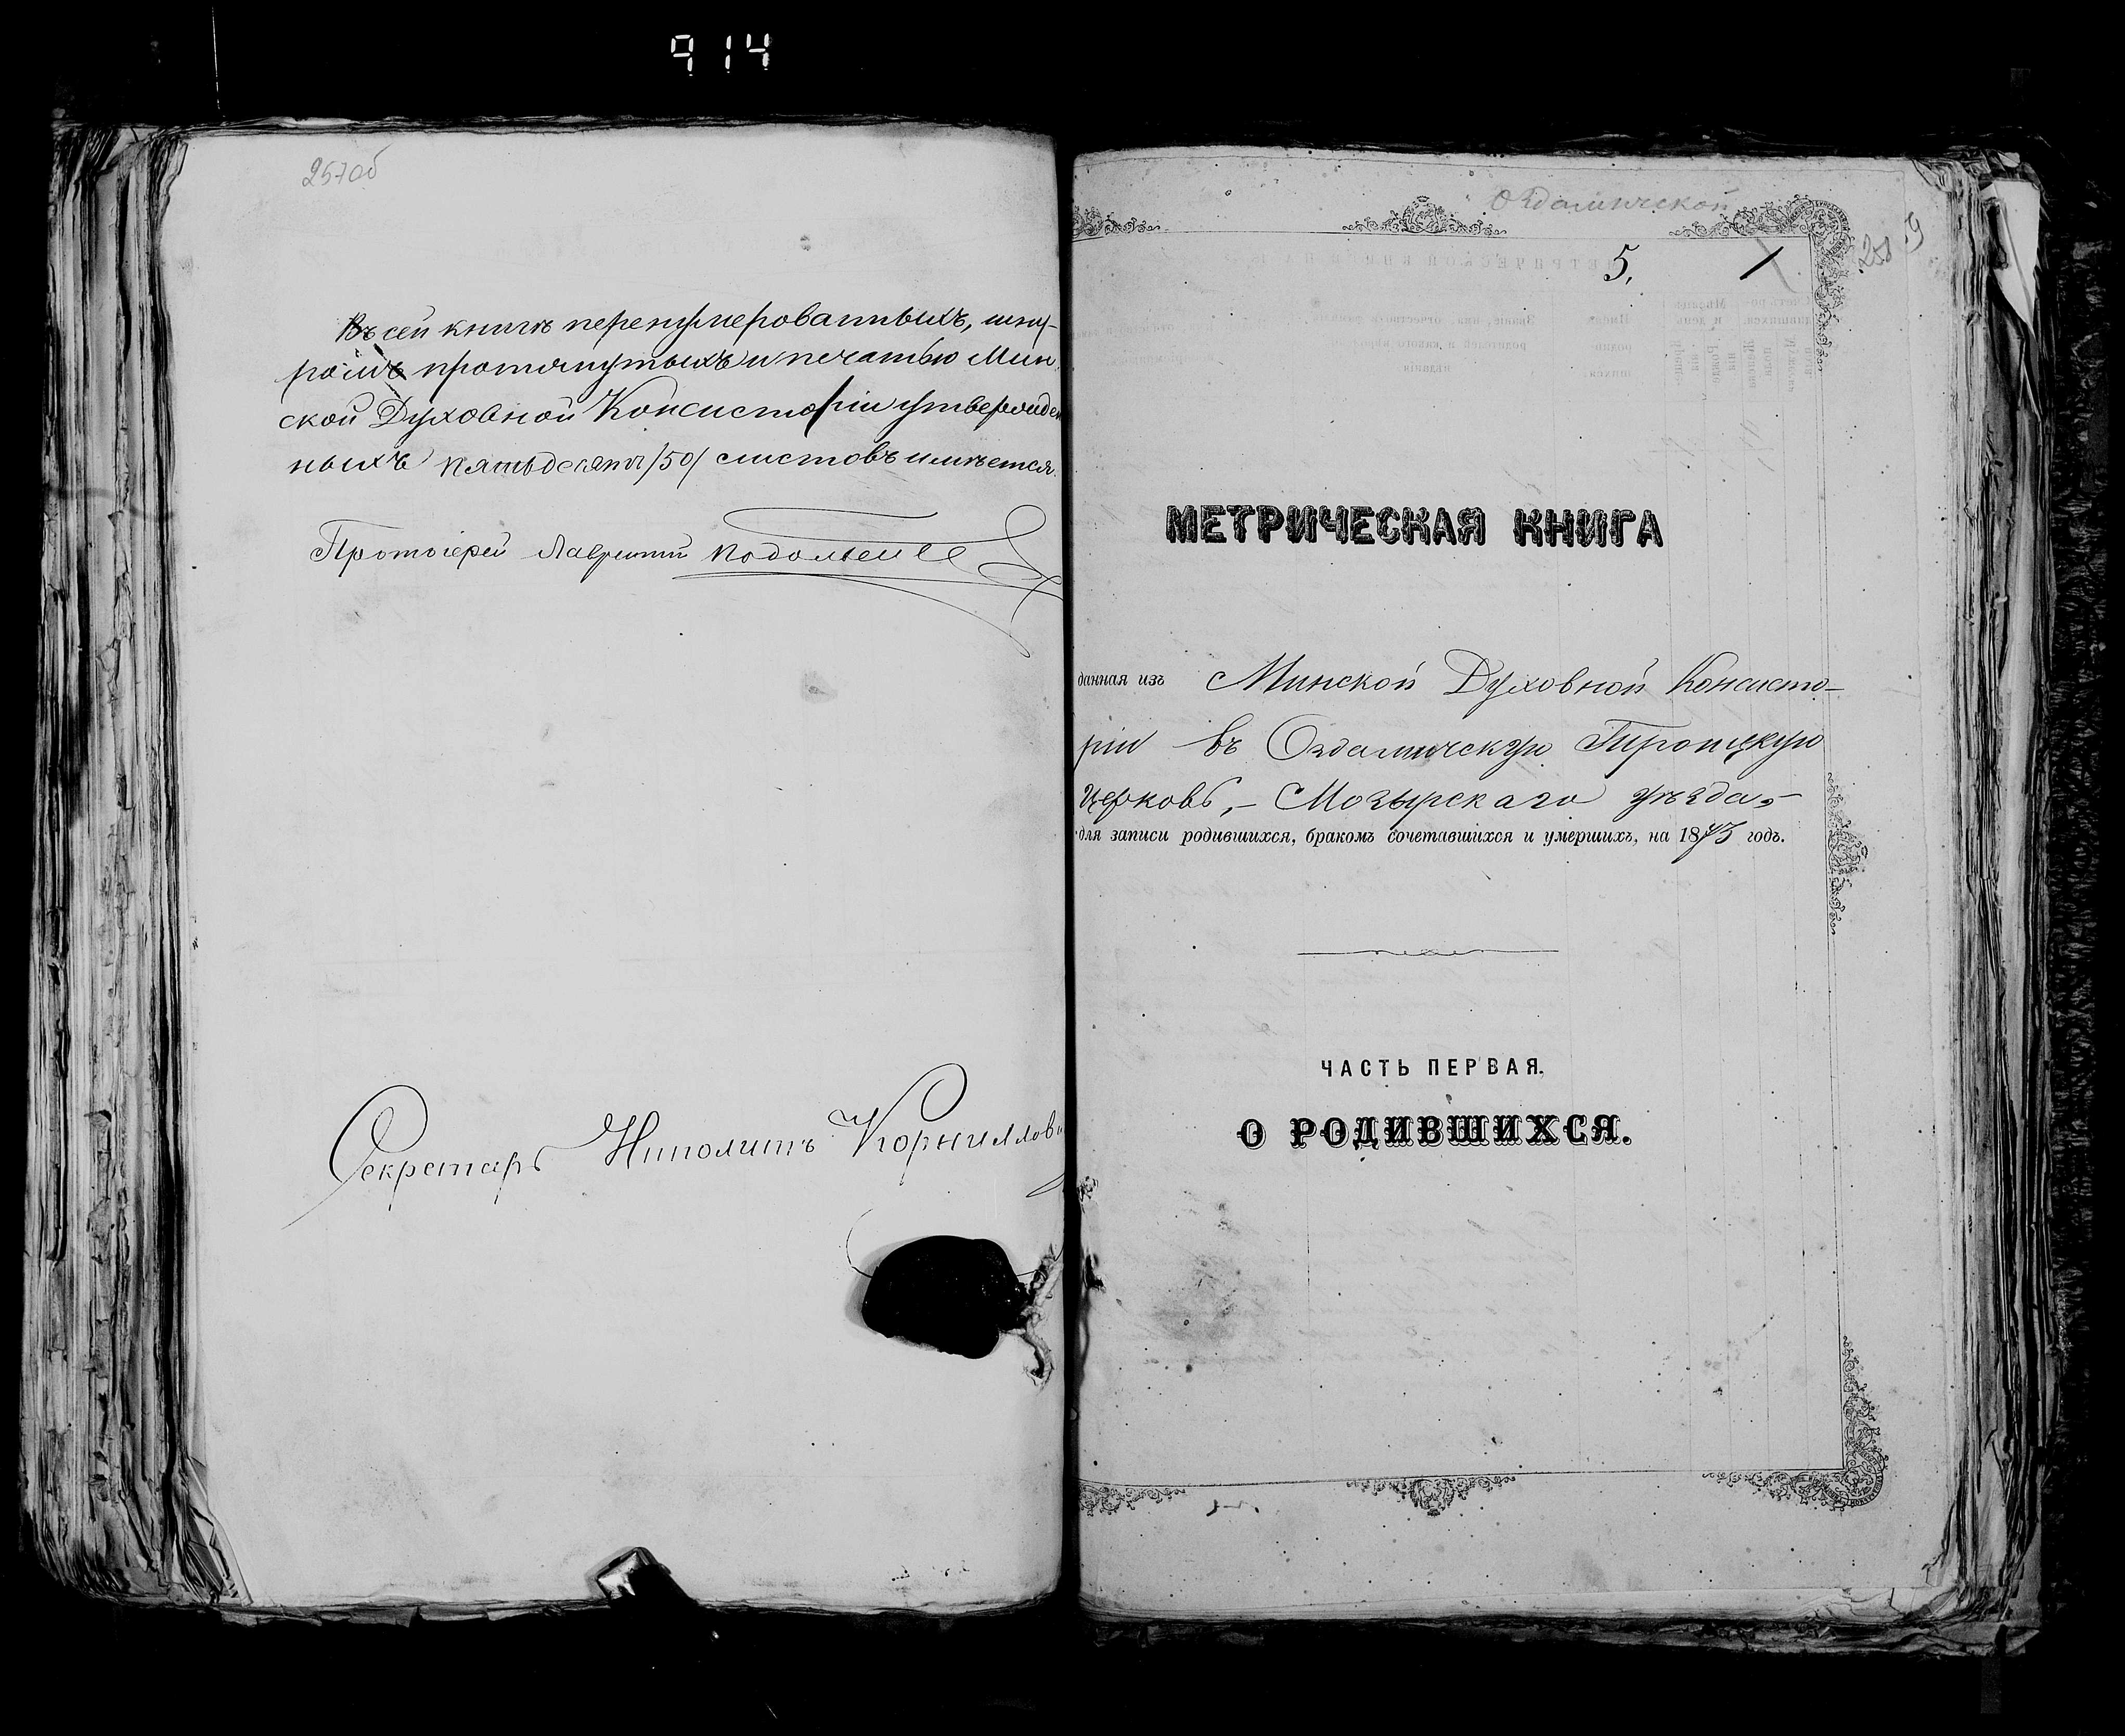 914
257об
Въ сей книгѣ перенумерованныхъ, шну-
ромъ протянутыхъ и печатью Мин
ской Духовной Консисторіи утвержден
ныхъ пятьдесятъ /50/ листовъ имѣется.
Протоіерей Лаврентій
Секретарь Ипполитъ Корниллов
Оздамической
5.
1
258
9
МЕТРИЧЕСКАЯ КНИГА
данная изъ Минской Духовной Консисто-
ріи въ Оздамическую Троицкую
Церковь, - Мозырскаго уѣзда, -
для записи родившихся, бракомъ сочетавшихся и умершихъ, на 1875 годъ.
ЧАСТЬ ПЕРВАЯ.
О РОДИВШИХСЯ.